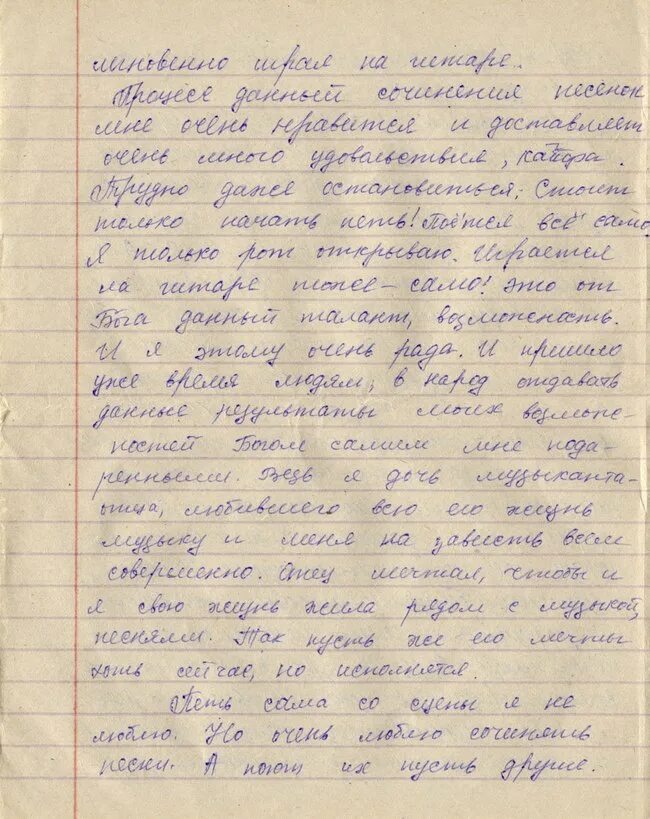 мгновенно играя на гитаре.
Процесс данный сочинения песенок
мне очень нравится и доставляет
очень много удовольствия, кайфа.
Трудно даже остановиться. Стоит
только начать петь! Поётся всё само,
я только рот открываю. Играется
на гитаре тоже – само! Это от
Бога данный талант, возможность.
И я этому очень рада. И пришло
уже время людям, в народ отдавать
данные результаты моих возмож-
ностей Богом самим мне пода-
ренными. Ведь я дочь музыканта-
отца, любившего всю его жизнь
музыку и меня на зависть всем
совершенно. Отец мечтал, чтобы и
я свою жизнь жила рядом с музыкой,
песнями. Так пусть же его мечты
хоть сейчас, но исполнятся.
Петь сама со сцены я не
люблю. Но очень люблю сочинять
песни. А поют их пусть другие.